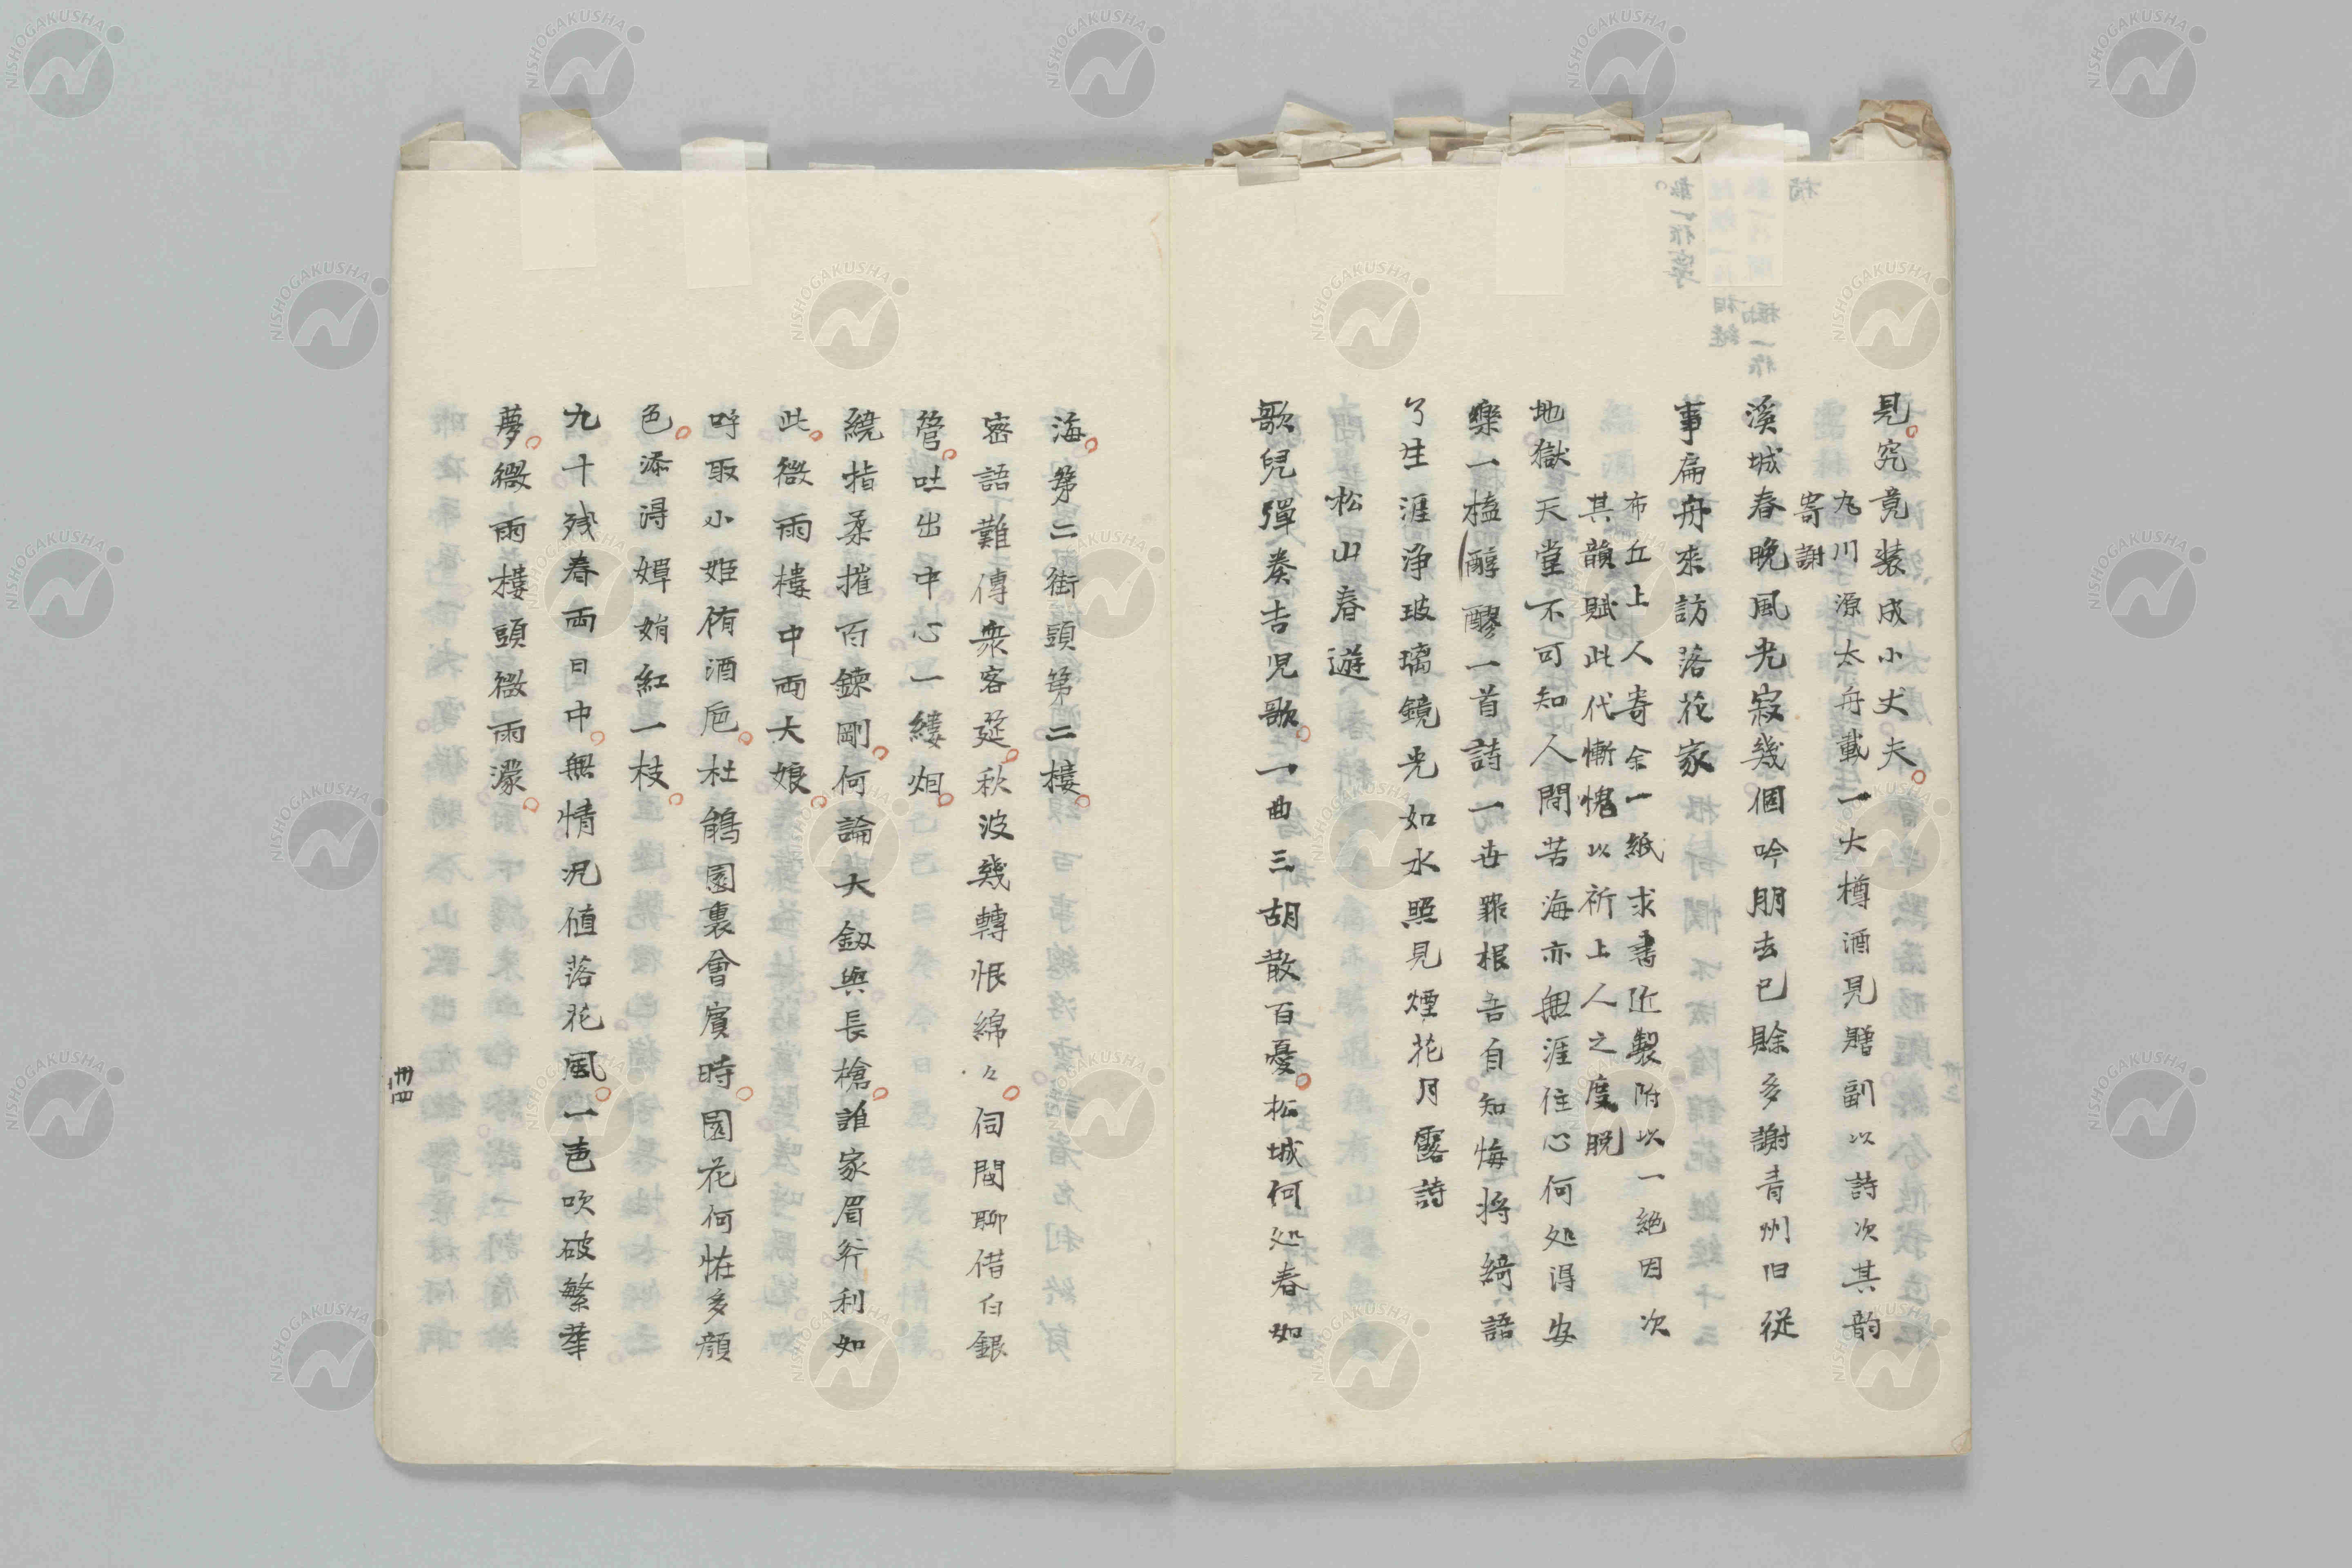 見究竟装成小丈夫
九川源太舟載一大樽酒見贈副以詩次其韵
寄謝
溪城春晩風光寂幾個吟朋去已賖多謝青州旧従
事扁舟来訪落花家
布丘上人寄余一紙求書近製附以一絶因次
其韻賦此代慚愧以祈上人之度脱
地獄天堂不可知人間苦海亦無涯住心何処得安
樂一榼醇醪一首詩一世罪根吾自知悔将綺語
了生涯浄玻璃鏡光如水照見煙花月露詩
松山春遊
歌兒彈奏吉児歌一曲三胡散百憂松城何処春如
海第二街頭第二楼
密語難傳衆客筵秋波幾轉恨綿々伺間聊借白銀
管吐出中心一縷烟
繞指柔摧百錬剛何論大釼與長槍誰家眉斧利如
此微雨樓中両大娘
呼取小姫侑酒巵杜鵑園裏會賓時園花何恠多顔
色添得嬋娟紅一枝
九十残春両日中無情况値落花風一声吹破繁華
夢微雨樓頭微雨濛
卅四
NISHOGAKUSHA